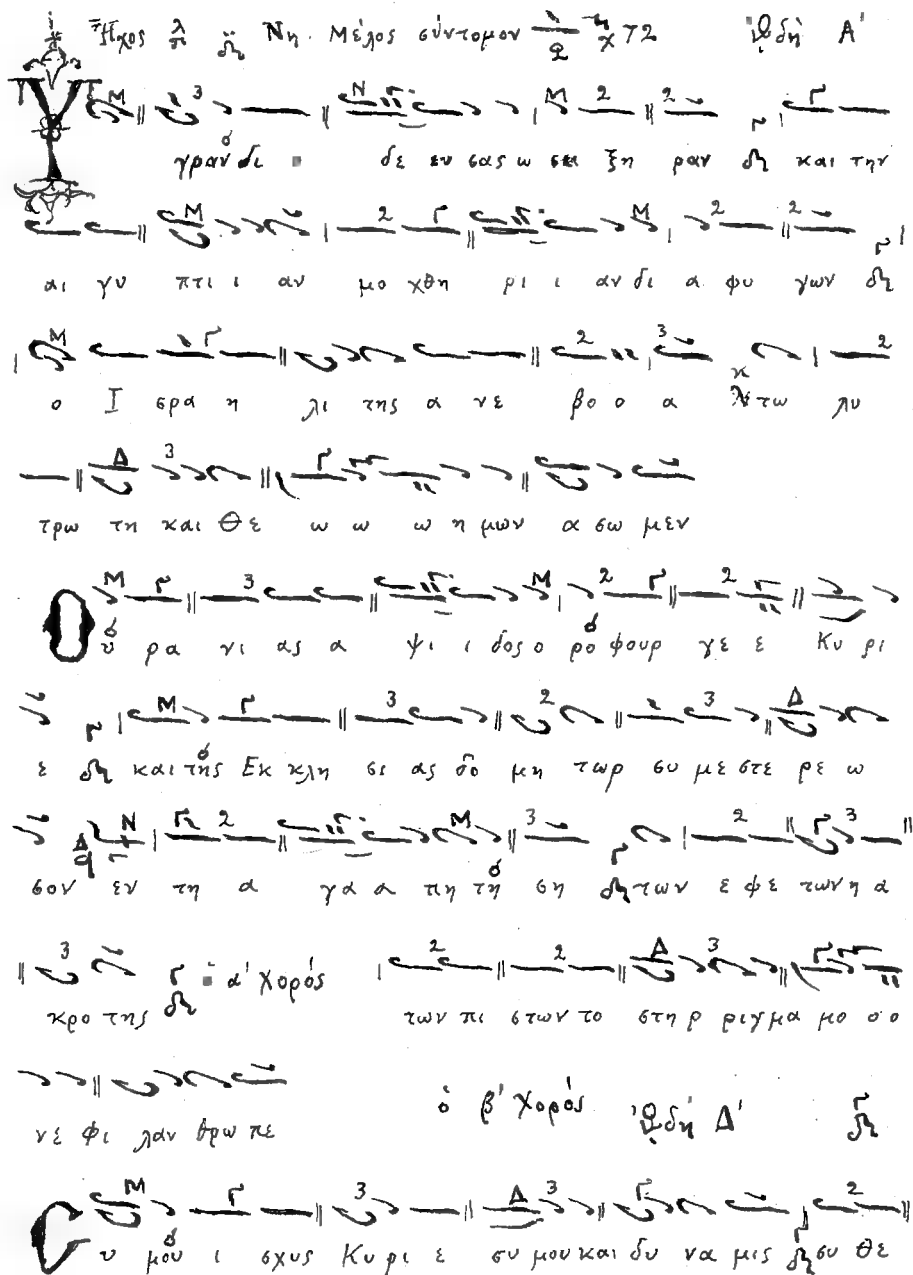 Ἦχος λ π Νη. Μέλος σύντομον χ 72 ᾨδὴ Α΄
Υ γραν δι δε ευ σας ω σει ξη ραν και την
αι γυ πτι ι αν μο χθη ρι ι αν δι α φυ γων
ο Ι σρα η λι της α νε βο ο α τω λυ
τρω τη και Θε ω ω ω η μων α σω μεν
Ο υ ρα νι ας α ψι ι δος ο ρο φουρ γε ε Κυ ρι
ε και της Εκ κλη σι ας δο μη τωρ συ με στε ρε ω
σον εν τη α γα α πη τη ση των ε φε των η α
κρο της α΄ Χορός των πι στων το στη ρ ριγμα μο ο ο
νε φι λαν θρω πε ὁ β΄ Χορός ᾨδή Δ΄
C υ μου ι σχυς Κυ ρι ε συ μου και δυ να μις συ Θε